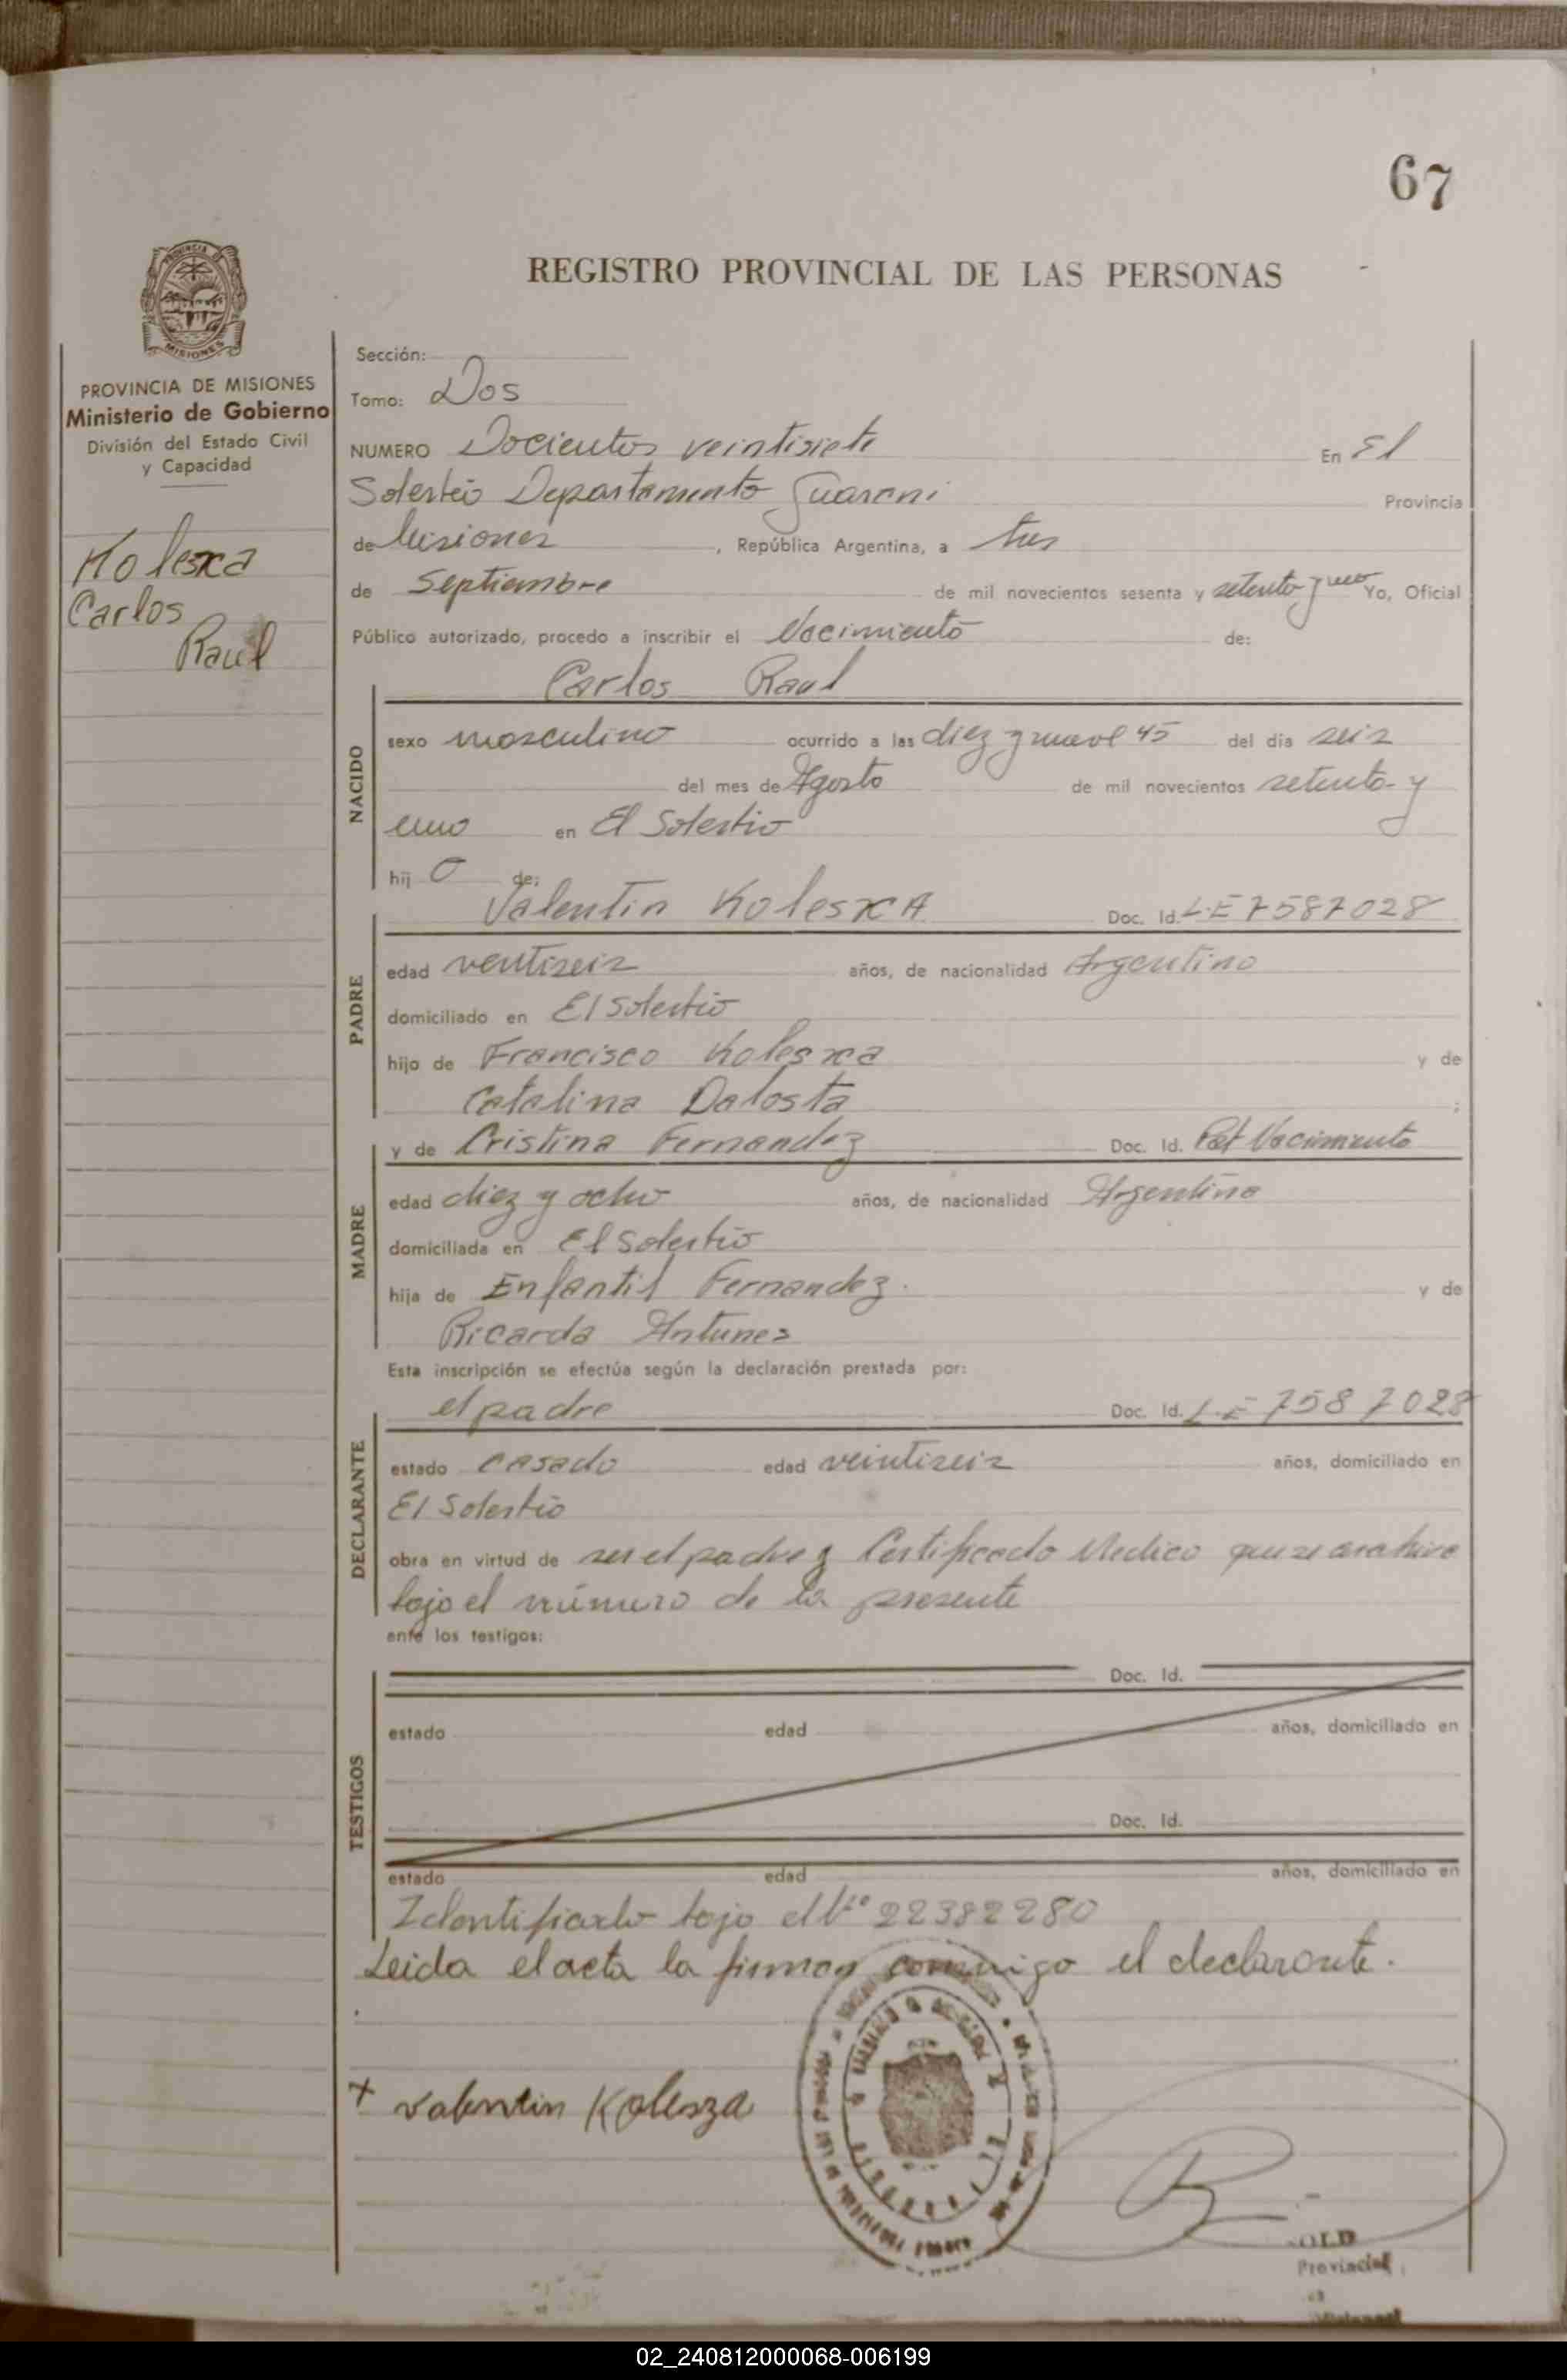 67
REGISTRO PROVINCIAL DE LAS PERSONAS
PROVINCIA
MISIONES
PROVINCIA DE MISIONES
Ministerio de Gobierno
División del Estado Civil
y Capacidad
Kolesxa
Carlos
Raul
Sección:
Tomo: Dos
NUMERO Docientos veintisiete En El
Soberbio Departamento Guarani Provincia
de Misiones, República Argentina, a tres
de Septiembre de mil novecientos sesenta y setenta y uno Yo, Oficial
Público autorizado, procedo a inscribir el Nacimiento de:
Carlos Raul
NACIDO
sexo masculino ocurrido a las diez y nueve 45 del día seis
del mes de Agosto de mil novecientos setenta y
uno en El Soberbio
hij o de:
Valentin Kolesxa Doc. Id. L.E 7587028
PADRE
edad ventiseis años, de nacionalidad Argentino
domiciliado en El Soberbio
hijo de Francisco Kolesxa y de
Catalina Dalosta ;
y de Cristina Fernandez Doc. Id. Nacimiento
MADRE
edad diez y ocho años, de nacionalidad Argentina
domiciliada en El Soberbio
hija de Enfantil Fernandez. y de
Ricarda Antunes
Esta inscripción se efectúa según la declaración prestada por:
el padre Doc. Id. L.E 7587028
DECLARANTE
estado casado edad veintiseis años, domiciliado en
El Soberbio
obra en virtud de ser el padre y Certificado Medico que se archiva
bajo el número de la presente
ante los testigos:
TESTIGOS
Doc. Id.
estado edad años, domiciliado en
Doc. Id.
estado edad años, domiciliado en
Identificado bajo el Nº 22382280
Leida el acta la firman conmigo el declarante.
+ Valentin Kolesza
OLD
Provincial
02_240812000068-006199